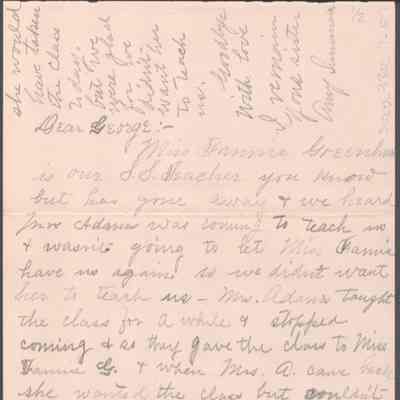 Dear George:-
Miss Fannie
is our S.S. Teacher you know
but has gone away & we heard
Mrs Adams was coming to teach us
& wasn't going to let Miss Fannie
have us again so we didn't want
her to teach us - Mrs. Adams taught
the class for a while & stopped
coming & so they gave the class to Miss
Fannie G. & when Mrs. A. came back
she wanted the class but couldn't
she would
have taken
the class
today.
but we
were glad
for we
didn't
want her
to teach
us.
Goodbye
With love
I remain
your sister
Amy